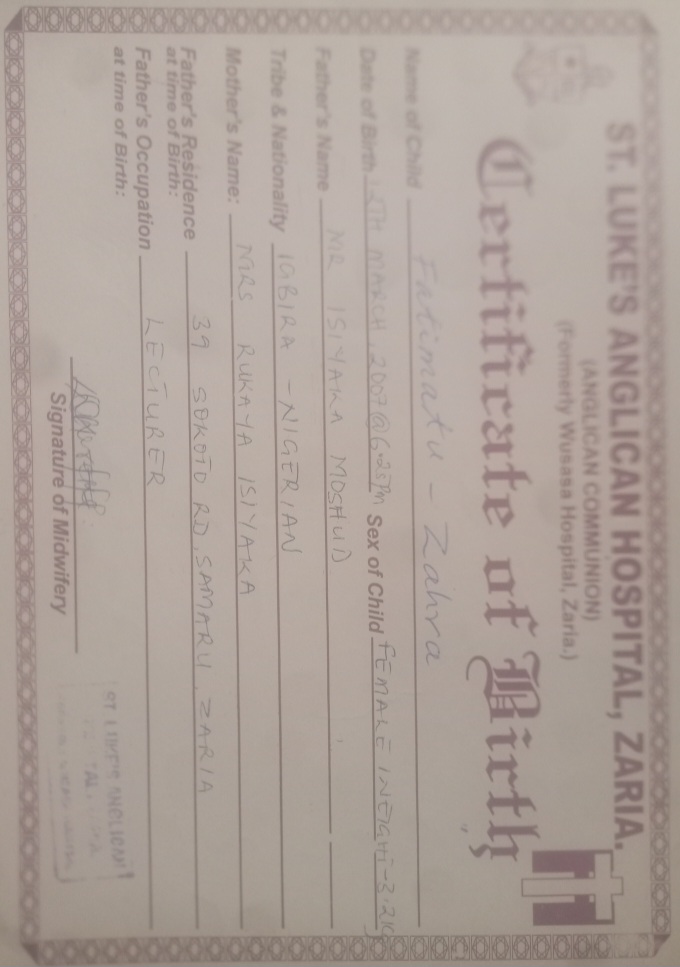 ST. LUKE'S ANGLICAN HOSPITAL, ZARIA.
(ANGLICAN COMMUNION)
(Formerly Wusasa Hospital, Zaria.)
Certificate of Birth
Name of Child Fatimatu - Zahra
Date of Birth MARCH, 2007 @ 6.25PM Sex of Child FEMALE WEIGHT-3.2KG
Father's Name MR ISIYAKA MOSHUD
Tribe & Nationality IGBIRA - NIGERIAN
Mother's Name: MRS RUKAYA ISIYAKA
Father's Residence 39 SOKOTO RD, SAMARU, ZARIA
at time of Birth:
Father's Occupation LECTURER
at time of Birth:
Signature of Midwifery
ST LUKE'S ANGLICAN